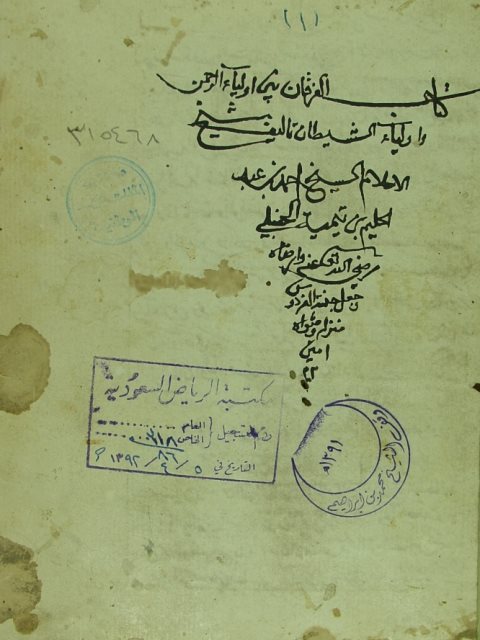 (١)
كتاب الفرقان بين اولياء الرحمن
واولياء الشيطان تاليف شيخ
الاسلام الشيخ احمد بن عبد
الحليم بن تيمية الحنبلي
رضي الله تعالى عنه وارضاه
وجعل جنة الفردوس
منزله ومثواه
امين
٣١٥٤٦٨
مكتبة الرياض السعودية
رقم التسجيل العام
الخاص ٨٦/٤١٨
التاريخ في ٥ / ٤ / ١٣٩٢ هـ
١٣٩١هـ
محمد بن ابراهيم